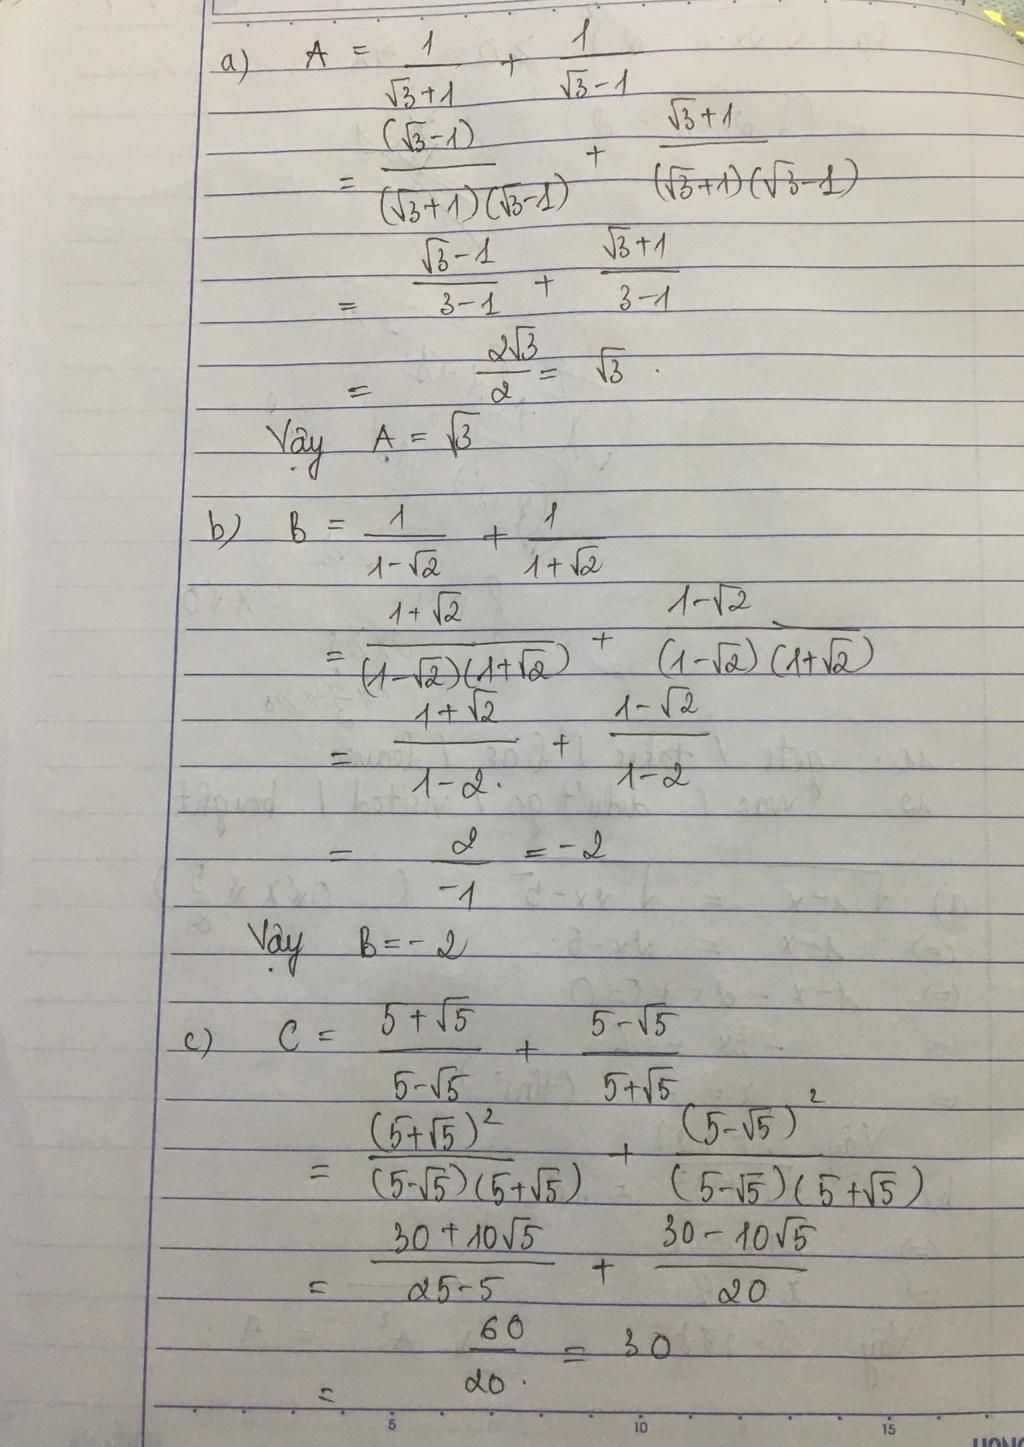 a) A = 1/(√3+1) + 1/(√3-1)
= (√3-1)/((√3+1)(√3-1)) + (√3+1)/((√3+1)(√3-1))
= (√3-1)/(3-1) + (√3+1)/(3-1)
= 2√3/2 = √3.
Vậy A = √3
b) B = 1/(1-√2) + 1/(1+√2)
= (1+√2)/((1-√2)(1+√2)) + (1-√2)/((1-√2)(1+√2))
= (1+√2)/(1-2) + (1-√2)/(1-2)
= 2/-1 = -2
Vậy B = -2
c) C = (5+√5)/(5-√5) + (5-√5)/(5+√5)
= (5+√5)²/((5-√5)(5+√5)) + (5-√5)²/((5-√5)(5+√5))
= (30+10√5)/(25-5) + (30-10√5)/20
= 60/20 = 30
5 10 15